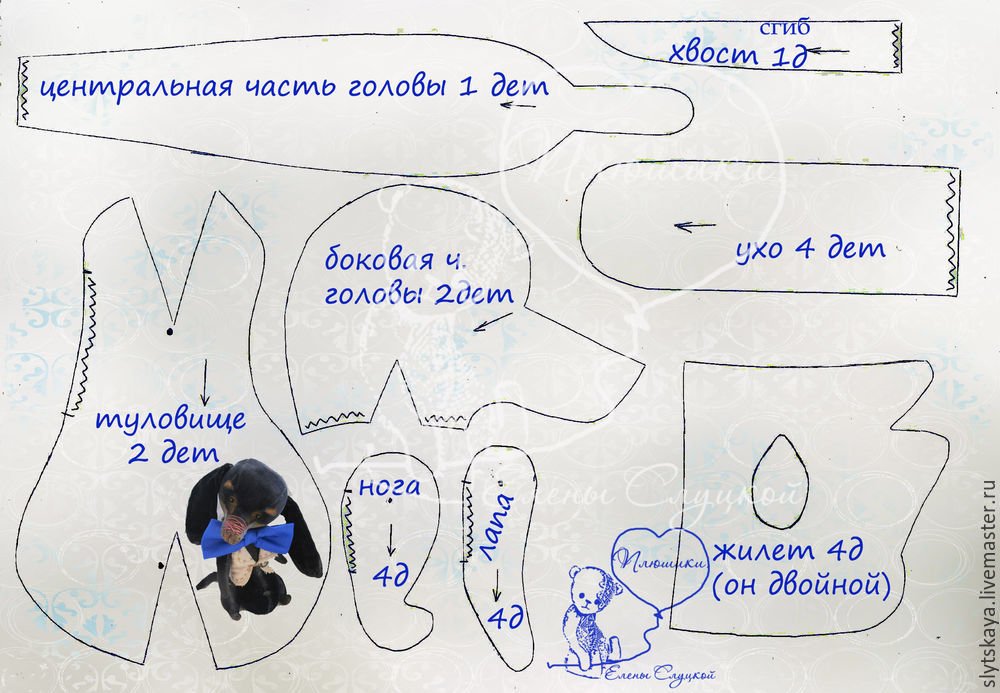 сгиб
хвост 1д
центральная часть головы 1 дет
Плюшики
ухо 4 дет
боковая ч.
головы 2дет
туловище
2 дет
нога
4д
лапа
4д
Елены Слуцкой
жилет 4д
(он двойной)
Плюшики
Елены Слуцкой
slytskaya.livemaster.ru